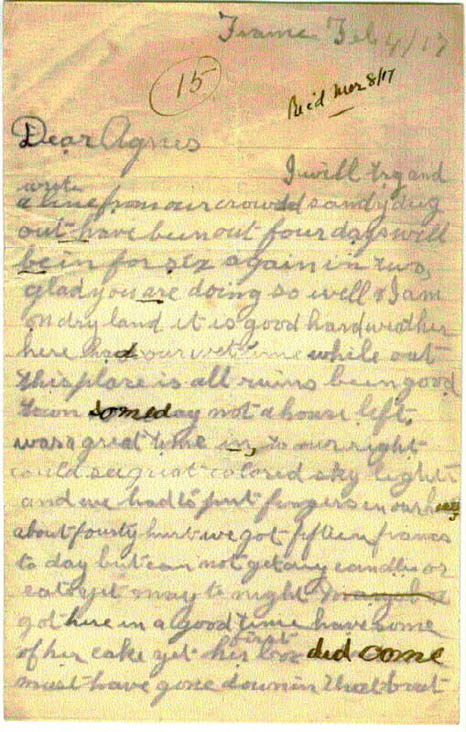 France Feb 4/17
15
Rec'd Mar 8/17
Dear Agnes
I will try and
write
a line from our crowdd sandy dug
out have been out four days will
be in for six again in two,
glad you are doing so well & I am
on dry land it is good hard weather
here had our wet time while out
this place is all ruins being good
town someday not a house left.
was a great time in, to our right
could see great colored sky lights
and we had to put fingers in our
about fourty hurt we got fifteen francs
to day but can not get any candles or
eats yet may to night
got here in a good time have some
of her cake yet her first box did come
must have gone down in that boat